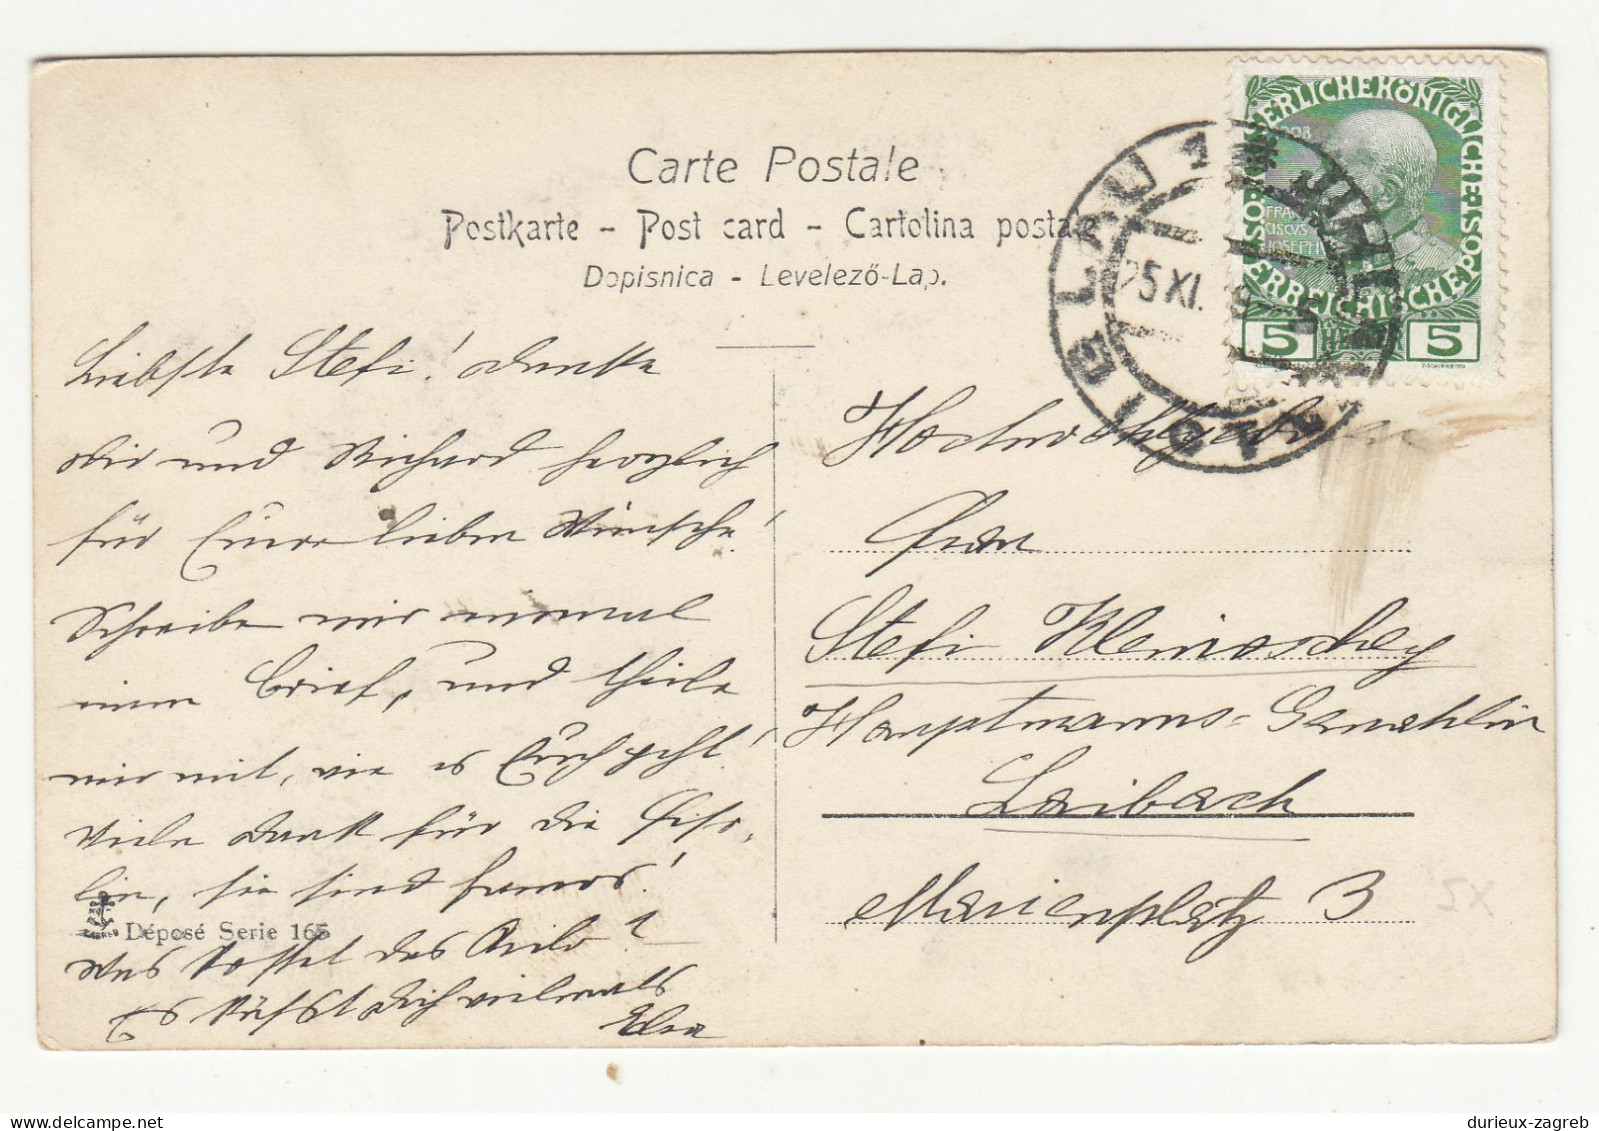 Carte Postale
Postkarte - Post card - Cartolina postale
Dopisnica - Levelező-Lap.
KAISERLICHE KÖNIGLICHE
ÖSTERREICHISCHE POST
1908
FRAN
CISCVS
JOSEPH I
5 HELLER 5
IGLAU 1
JIHLAVA
25 XI.
Liebste Stefi! danke
dir und Richard herzlich
für Eure lieben Wünsche!
Schreibe mir einmal
einen Brief, und theile
mir mit, wie es Euch geht!
Vielen Dank für die Fiso-
len, sie sind famos!
Déposé Serie 165
Was kostet das Kilo?
Es küßt Dich vielmals
Elsa
Hochwohlgeboren
Frau
Stefi Kleinoscheg
Hauptmanns-Gemahlin
Laibach
Marienplatz 3
durieux-zagreb